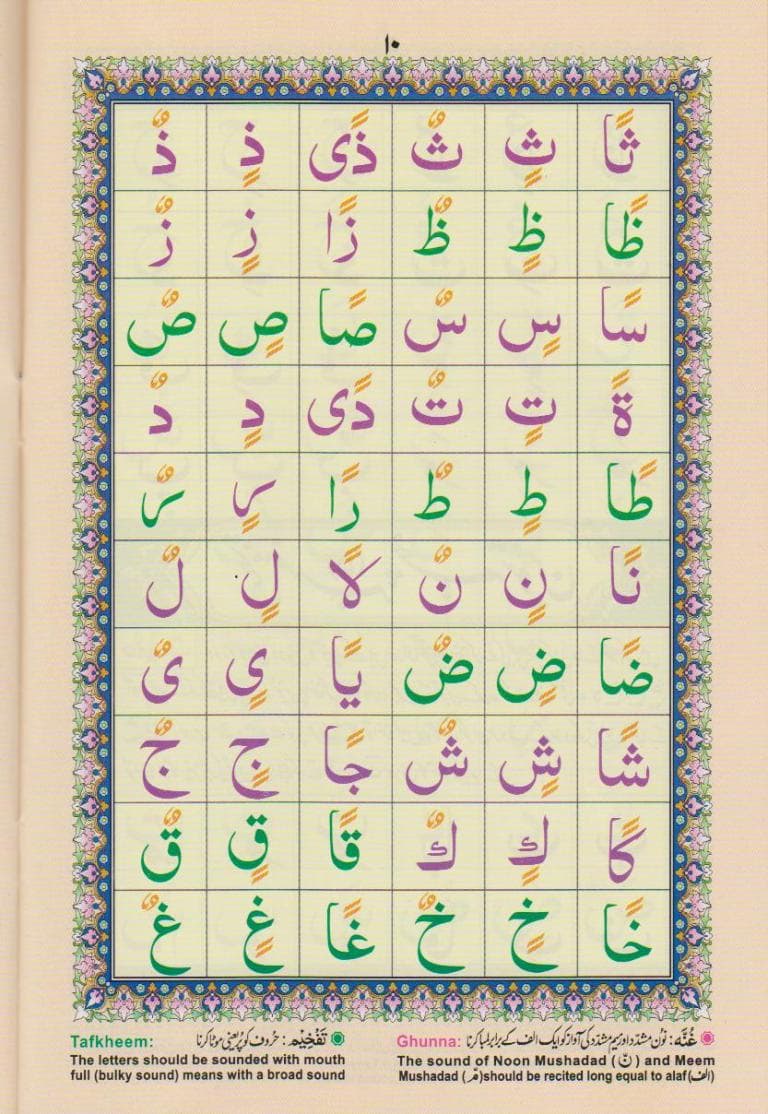 ١٠
ثًا ثٍ ثٌ ذًی ذٍ ذٌ
ظًا ظٍ ظٌ زًا زٍ زٌ
سًا سٍ سٌ صًا صٍ صٌ
ةً تٍ تٌ دًی دٍ دٌ
طًا طٍ طٌ رًا رٍ رٌ
نًا نٍ نٌ لًا لٍ لٌ
ضًا ضٍ ضٌ يًا یٍ یٌ
شًا شٍ شٌ جًا جٍ جٌ
كًا كٍ كٌ قًا قٍ قٌ
خًا خٍ خٌ غًا غٍ غٌ
غُنَّه: نون مشدّد اور میم مشدّد کی آواز کو ایک الف کے برابر لمبا کرنا
Ghunna:
The sound of Noon Mushadad (نّ) and Meem
Mushadad (مّ) should be recited long equal to alaf (الف)
تَفْخِیْم: حروف کو پُر یعنی موٹا کرنا
Tafkheem:
The letters should be sounded with mouth
full (bulky sound) means with a broad sound